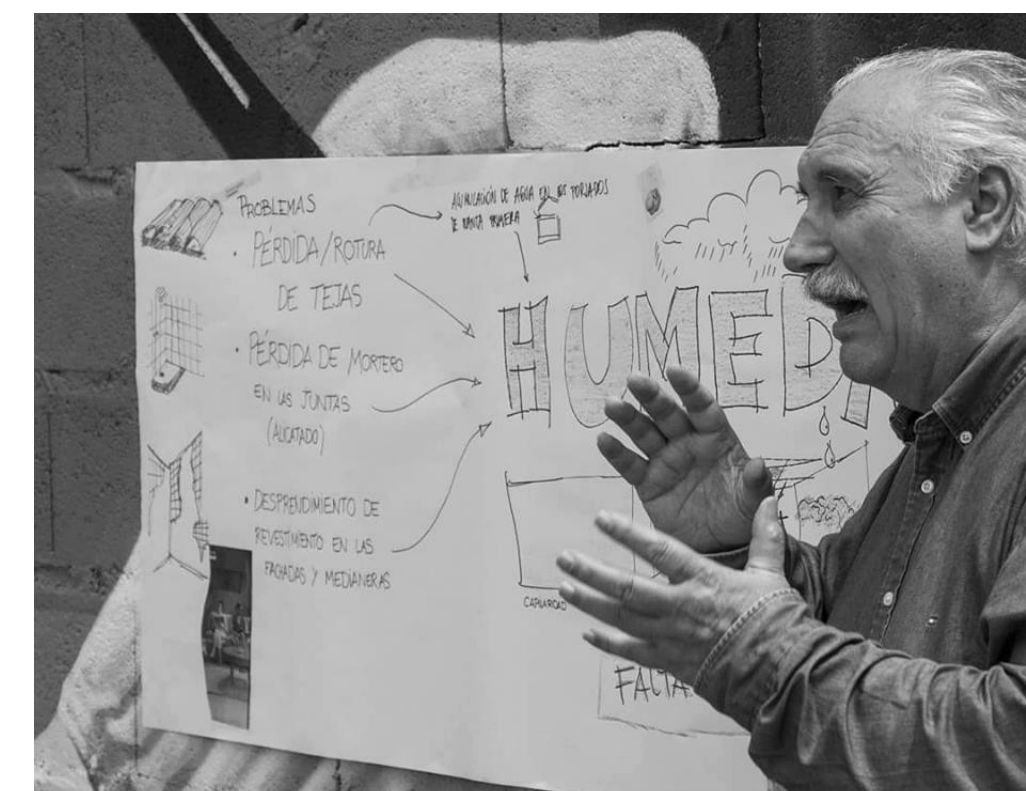 PROBLEMAS
· PÉRDIDA/ROTURA
DE TEJAS
· PÉRDIDA DE MORTERO
EN LAS JUNTAS
(ALICATADO)
· DESPRENDIMIENTO DE
REVESTIMIENTO EN LAS
FACHADAS Y MEDIANERAS
ACUMULACIÓN DE AGUA EN LOS FORJADOS
DE PLANTA PRIMERA
HUMED
CAPILARIDAD
FALTA